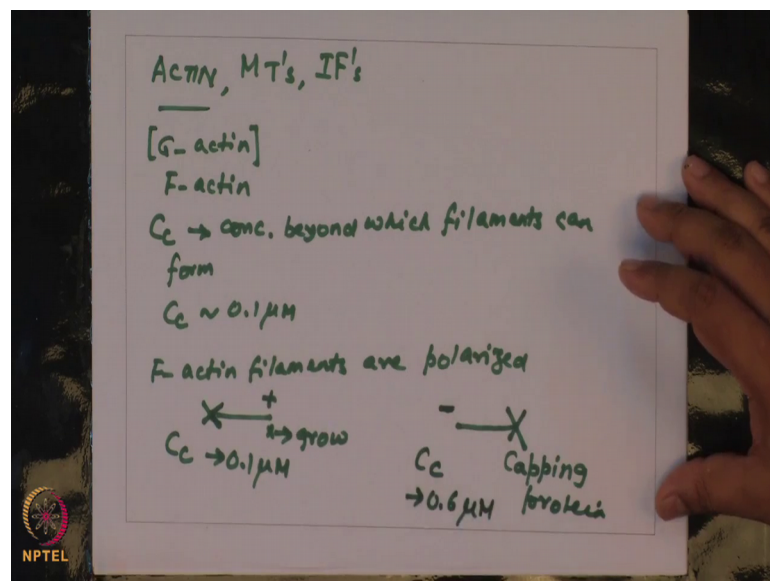 Actin, MT's, IF's
[G-actin]
F-actin
Cc → conc. beyond which filaments can
form
Cc ~ 0.1 μM
F-actin filaments are polarized
+ -
→ grow
Cc → 0.1 μM
Cc Capping
→ 0.6 μM protein
NPTEL